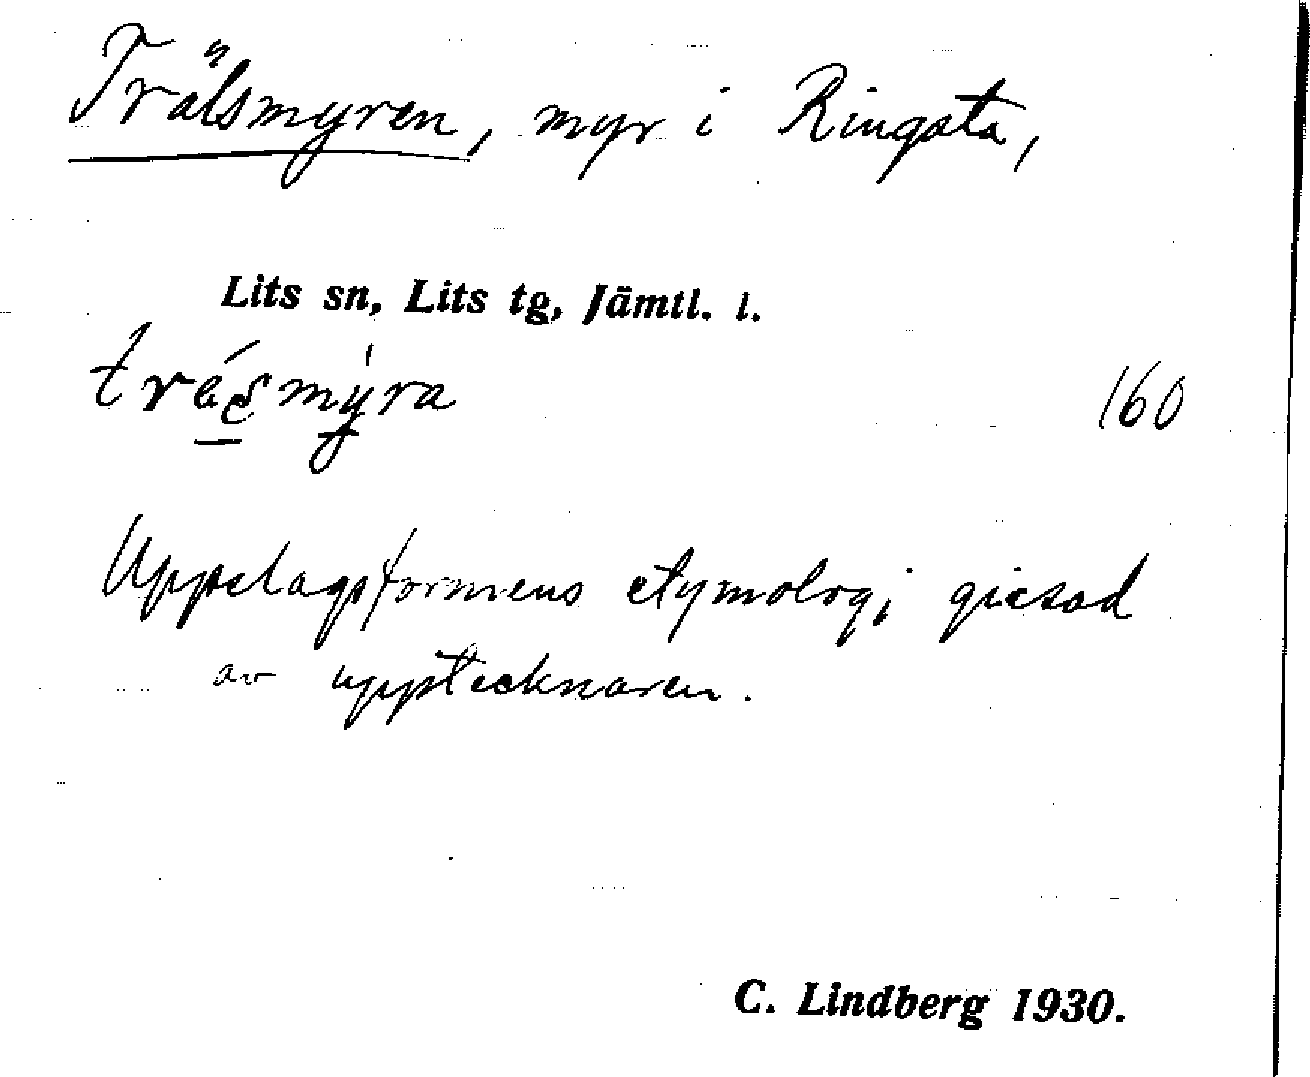 Trälsmyren, myr i Ringsta,
Lits sn, Lits tg, Jämtl. l.
160
Uppslagsformens etymologi gissad
av upptecknaren.
C. Lindberg 1930.